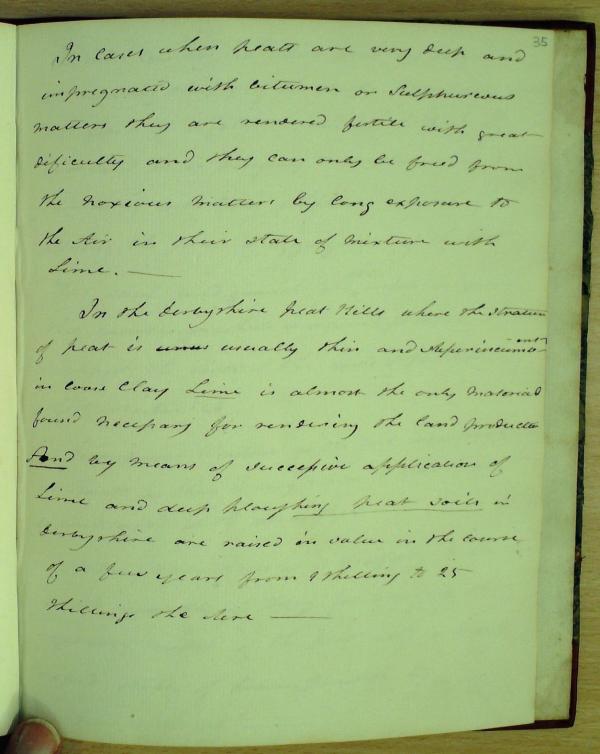 35
In cases when peats are very deep and
impregnated with bitumen or Sulphureous
matters they are rendered fertile with great
dificulty and they can only be freed from
the noxious matters by long exposure to
the Air in their state of mixture with
Lime. —
In the Derbyshire peat Hills where the stratum
of peat is usually thin and superincumbent
in loose Clay Lime is almost the only material
found necessary for rendering the land productive
And by means of successive application of
Lime and deep ploughing peat soils in
Derbyshire are raised in value in the course
of a few years from 1 shilling to 25
shillings the Acre —